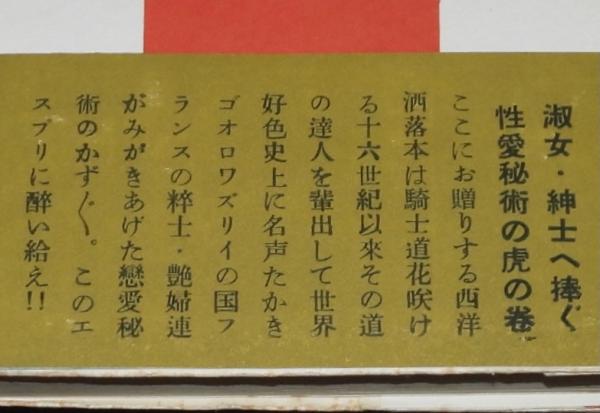 淑女・紳士へ捧ぐ
性愛秘術の虎の巻
ここにお贈りする西洋
洒落本は騎士道花咲け
る十六世紀以來その道
の達人を輩出して世界
好色史上に名声たかき
ゴオロワズリイの国フ
ランスの粹士・艶婦連
がみがきあげた戀愛秘
術のかず〳〵。このエ
スプリに酔い給え!!